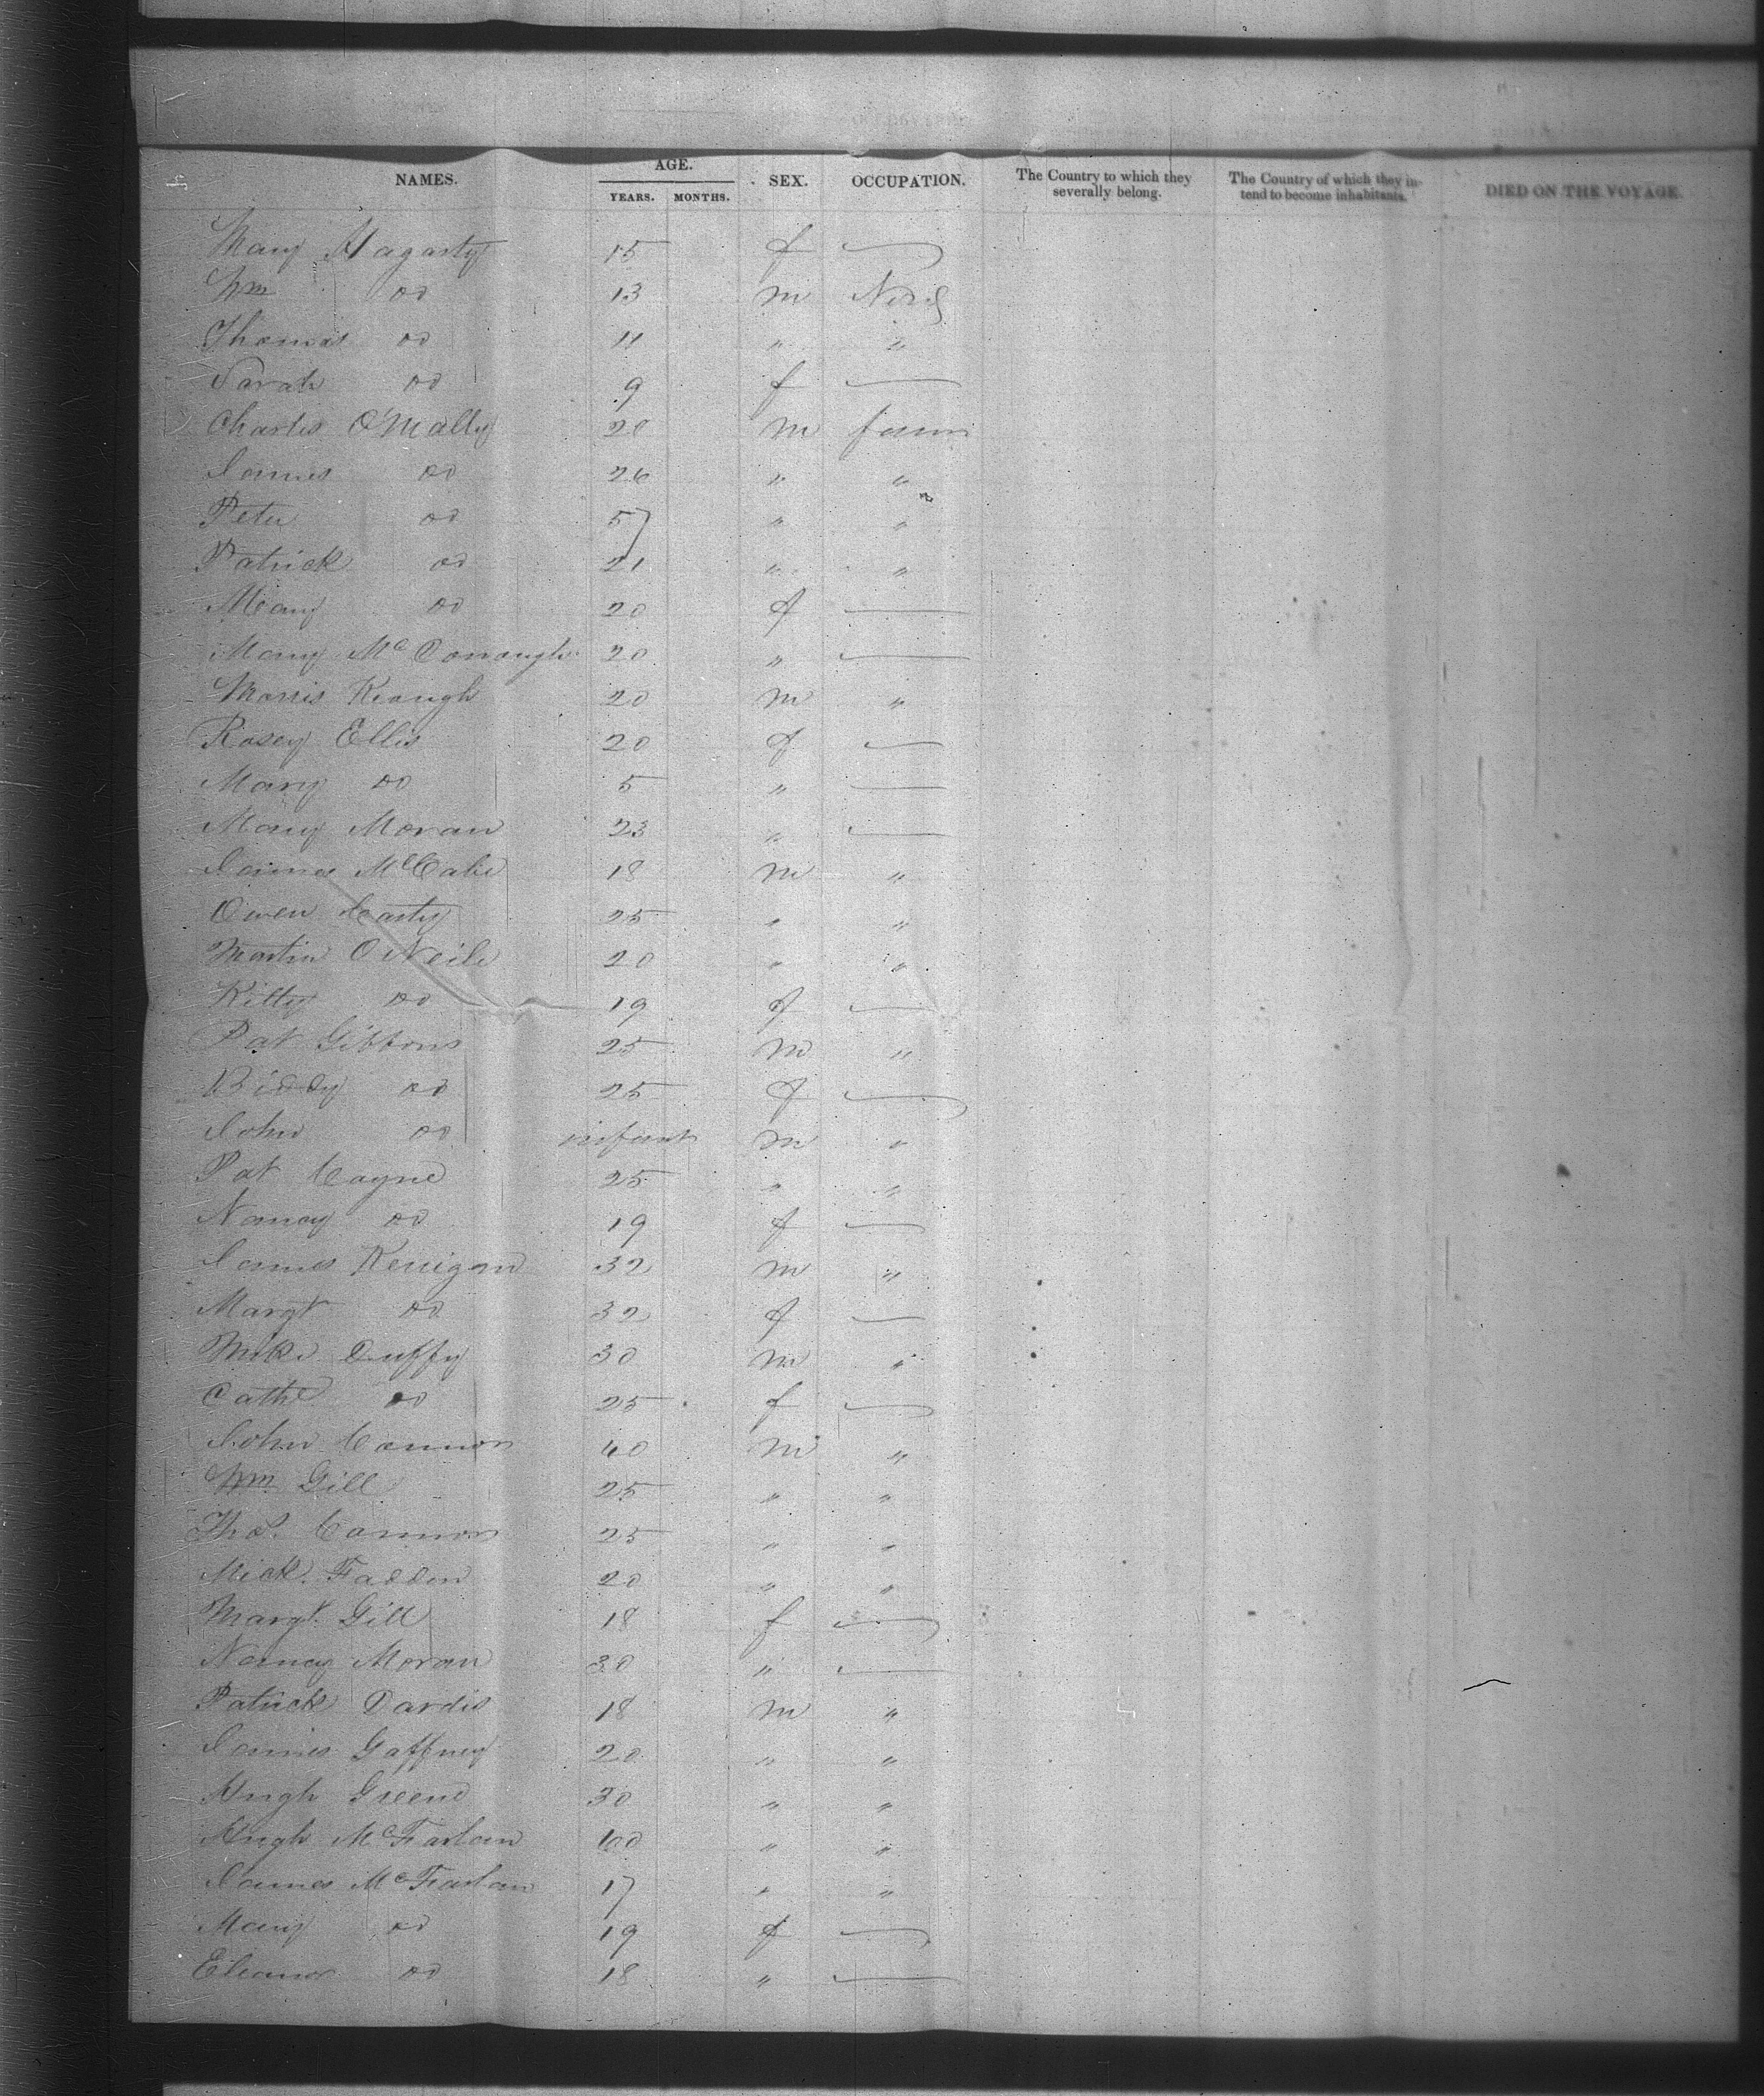 NAMES. AGE. YEARS. MONTHS. SEX. OCCUPATION. The Country to which they severally belong. The Country of which they intend to become inhabitants. DIED ON THE VOYAGE.
Mary Hagarty 15 f —
Wm do 13 m
Thomas do 11 " "
Sarah do 9 f —
Charles O'Mally 20 m farm
James do 26 " "
Peter do 57 " "
Patrick do 21 " "
Mary do 20 f —
Mary McDonough 20 " —
Morris Keough 20 m "
Rosey Ellis 20 f —
Mary do 5 " —
Mary Moran 23 " —
James McCabe 18 m "
Owen Carty 25 " "
Martin O'Neile 20 " "
Kitty do 19 f —
Pat Gibbons 25 m "
Biddy do 25 f —
John do infant m "
Pat Coyne 25 " "
Nancy do 19 f —
James Kerrigan 32 m "
Margt do 32 f —
Mike Duffy 30 m "
Cathe do 25 f —
John Connors 40 m "
Wm Gill 25 " "
Thos. Connors 25 " "
Mick Fadden 20 " "
Margt. Gill 18 f —
Nancy Moran 30 " —
Patrick Dardis 18 m "
James Gaffney 20 " "
Hugh Greene 30 " "
Hugh McFarlan 100 " "
James McFarlan 17 " "
Mary do 19 f —
Eleanor do 18 " —